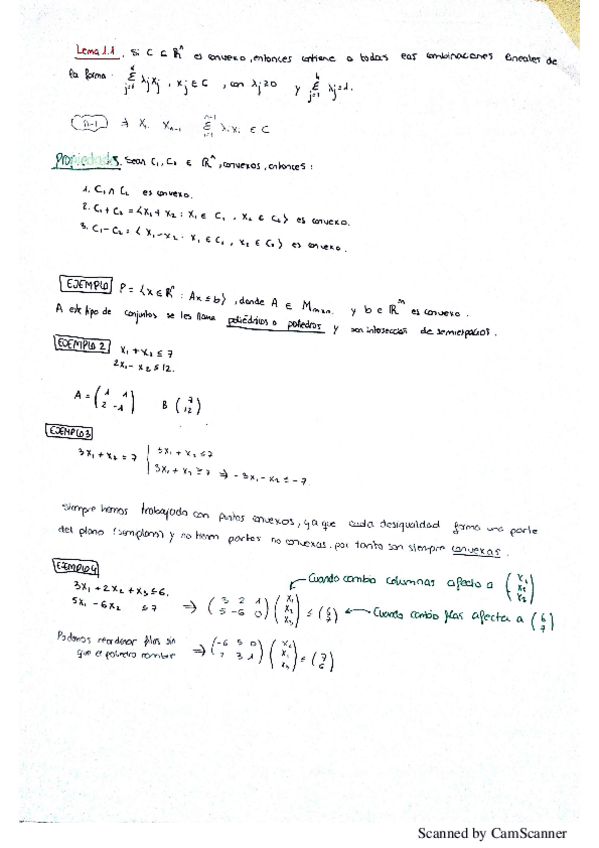 Lema 1.1. Si C ⊆ ℝⁿ es convexo, entonces contiene a todas las combinaciones lineales de
la forma: ∑_{j=1}^{k} λjxj, xj ∈ C, con λj ≥ 0 y ∑_{j=1}^{k} λj = 1.
n-1 ⇒ X₁ Xₙ₋₁ ∑_{i=1}^{n-1} λᵢxᵢ ∈ C
Propiedades. Sean C₁, C₂ ∈ ℝⁿ, convexos, entonces:
1. C₁ ∩ C₂ es convexo.
2. C₁ + C₂ = {x₁ + x₂ : x₁ ∈ C₁, x₂ ∈ C₂} es convexo.
3. C₁ - C₂ = {x₁ - x₂ : x₁ ∈ C₁, x₂ ∈ C₂} es convexo.
EJEMPLO P = {x ∈ ℝⁿ : Ax ≤ b}, donde A ∈ Mmxn. y b ∈ ℝᵐ es convexo.
A este tipo de conjuntos se les llama poliédricos o poliedros y son intersección de semiespacios.
EJEMPLO 2 x₁ + x₂ ≤ 7
2x₁ - x₂ ≤ 12.
A = (1 1
2 -1) B (7
12)
EJEMPLO 3
3x₁ + x₂ = 7 | 3x₁ + x₂ ≤ 7
3x₁ + x₂ ≥ 7 ⇒ -3x₁ - x₂ ≤ -7.
Siempre hemos trabajado con puntos convexos, ya que cada desigualdad forma una parte
del plano (semiplano) y no tienen partes no convexas. por tanto son siempre convexas.
EJEMPLO 4
Cuando cambio columnas afecto a (x₁
x₂
x₃)
3x₁ + 2x₂ + x₃ ≤ 6.
5x₁ - 6x₂ ≤ 7 ⇒ (3 2 1
5 -6 0) (x₁
x₂
x₃) ≤ (6
7) ← Cuando cambio filas afecta a (6
7)
Podemos reordenar filas sin
que el poliedro cambie ⇒ (-6 5 0
2 3 1) (x₂
x₁
x₃) ≤ (7
6)
Scanned by CamScanner